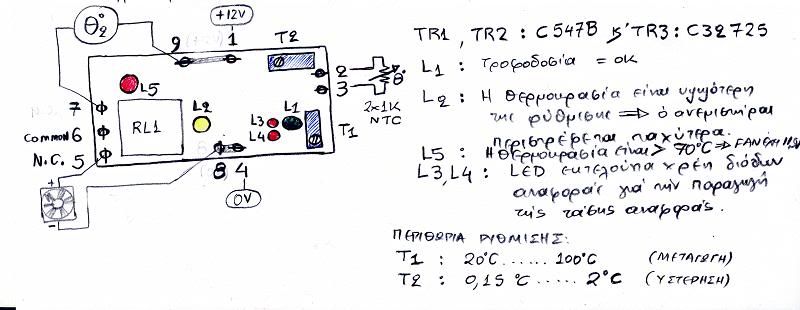 +12V
θ°2
T2
9
1
2
3
θ°
2x1K
NTC
L5
7
COMMON 6
N.C. 5
RL1
L2
L3
L4
L1
T1
8 4
0V
+
-
TR1, TR2 : C547B & TR3 : C32725
L1 : Τροφοδοσία = OK
L2 : Η θερμοκρασία είναι υψηλότερη
της ρύθμισης ⇒ ο ανεμιστήρας
περιστρέφεται ταχύτερα.
L5 : Η θερμοκρασία είναι > 70°C ⇒ FAN
L3, L4 : LED εκτελούν χρέη διόδων
αναφοράς για την παραγωγή
της τάσης αναφοράς.
ΠΕΡΙΘΩΡΙΑ ΡΥΘΜΙΣΗΣ:
T1 : 20°C ...... 100°C (ΜΕΤΑΓΩΓΗ)
T2 : 0,15 °C ..... 2°C (ΥΣΤΕΡΗΣΗ)